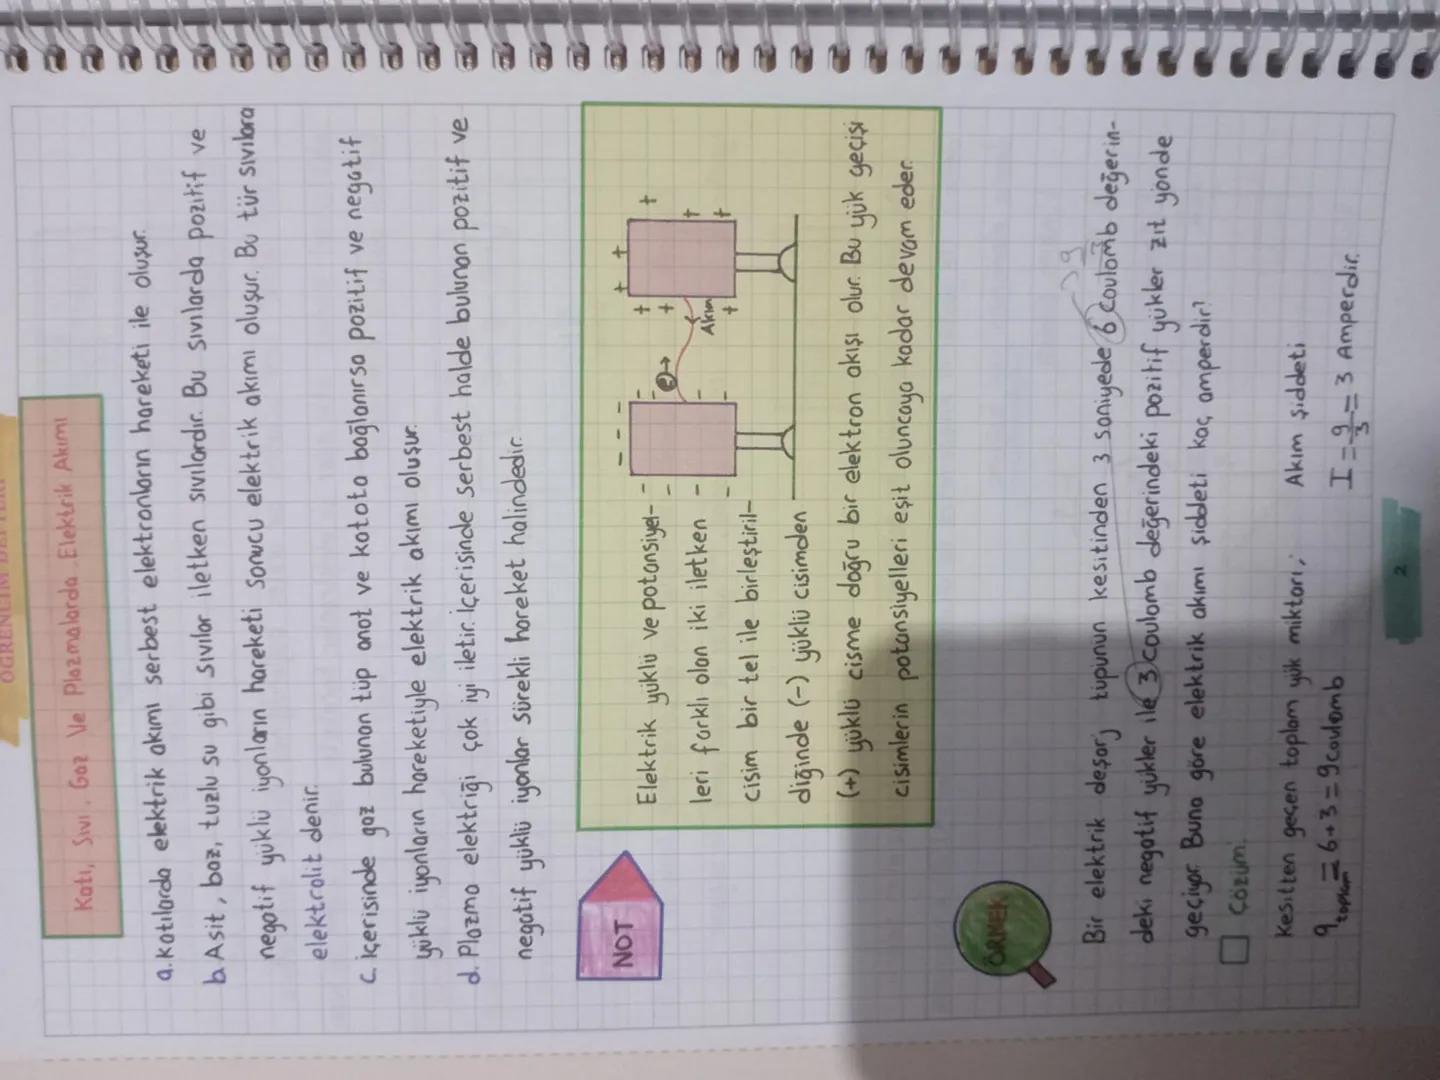 ÖĞRENCİM DEFTERİ
Katı, Sıvı, Gaz Ve Plazmalarda Elektrik Akımı
a. Katılarda elektrik akımı serbest elektronların hareketi ile oluşur.
b. Asit, baz, tuzlu su gibi sıvılar iletken sıvılardır. Bu sıvılarda pozitif ve
negatif yüklü iyonların hareketi sonucu elektrik akımı oluşur. Bu tür sıvılara
elektrolit denir.
c. İçerisinde gaz bulunan tüp anot ve katota bağlanırsa pozitif ve negatif
yüklü iyonların hareketiyle elektrik akımı oluşur.
d. Plazma elektriği çok iyi iletir. İçerisinde serbest halde bulunan pozitif ve
negatif yüklü iyonlar sürekli hareket halindedir.
NOT
Elektrik yüklü ve potansiyel-
leri farklı olan iki iletken
cisim bir tel ile birleştiril-
diğinde (-) yüklü cisimden
(+) yüklü cisme doğru bir elektron akışı olur. Bu yük geçişi
cisimlerin potansiyelleri eşit oluncaya kadar devam eder.
Akım
ÖRNEK
Bir elektrik deşarj tüpünun kesitinden 3 saniyede 6 Coulomb değerin-
deki negatif yükler ile 3 Coulomb değerindeki pozitif yükler zıt yönde
geçiyor. Buna göre elektrik akımı şiddeti kaç amperdir?
9
Çözüm:
Kesitten geçen toplam yük miktarı; Akım şiddeti
q toplam = 6+3 = 9 coulomb I = 9/3 = 3 Amperdir.
2